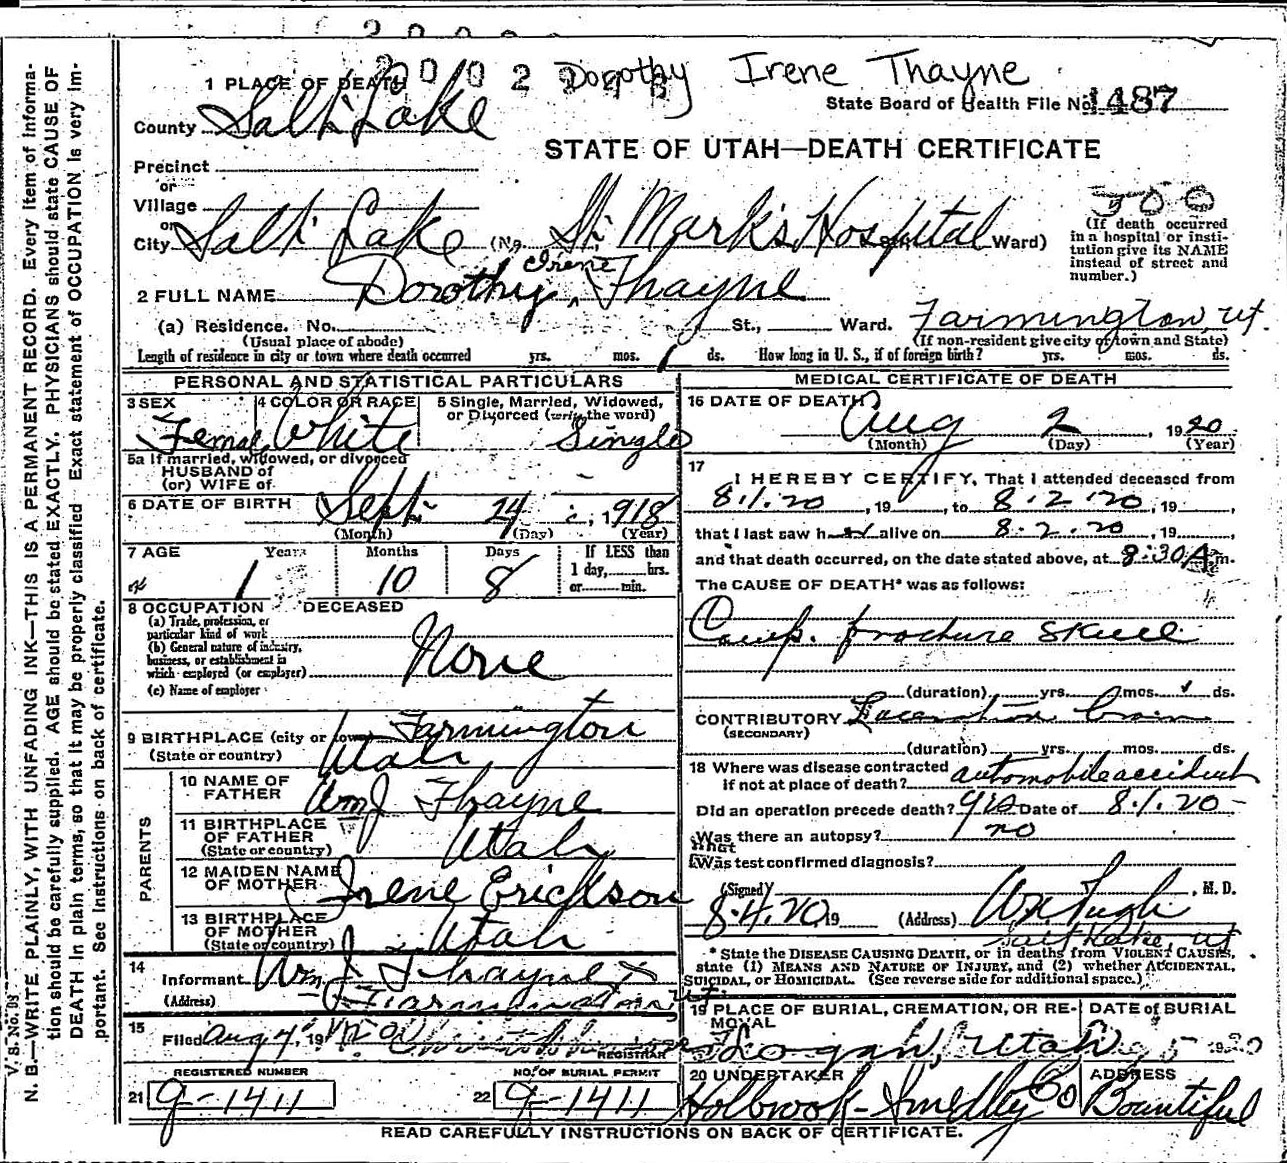 2002
Dorothy Irene Thayne
1 PLACE OF DEATH
State Board of Health File No. 1487
County Salt Lake
STATE OF UTAH—DEATH CERTIFICATE
Precinct
or
Village
or
City Salt Lake (No. St. Mark's Hospital Ward)
500
(If death occurred
in a hospital or insti-
tution give its NAME
instead of street and
number.)
Irene
2 FULL NAME Dorothy ^ Thayne
(a) Residence. No. St., Ward. Farmington, Ut.
(Usual place of abode) (If non-resident give city or town and State)
Length of residence in city or town where death occurred yrs. mos. 1 ds. How long in U. S., if of foreign birth? yrs. mos. ds.
PERSONAL AND STATISTICAL PARTICULARS
3 SEX 4 COLOR OR RACE 5 Single, Married, Widowed,
or Divorced (write the word)
Female White Single
5a If married, widowed, or divorced
HUSBAND of
(or) WIFE of
6 DATE OF BIRTH Sept. 24, 1918
(Month) (Day) (Year)
7 AGE Years Months Days If LESS than
1 day, hrs.
or min.
1 10 8
8 OCCUPATION OF DECEASED
(a) Trade, profession, or
particular kind of work
(b) General nature of industry,
business, or establishment in
which employed (or employer)
None
(c) Name of employer
9 BIRTHPLACE (city or town) Farmington
(State or country) Utah
PARENTS
10 NAME OF
FATHER Wm J Thayne
11 BIRTHPLACE
OF FATHER
(State or country) Utah
12 MAIDEN NAME
OF MOTHER Irene Erickson
13 BIRTHPLACE
OF MOTHER
(State or country) Utah
14
Informant Wm J Thayne
(Address) Farmington Ut.
15
Filed Aug 4, 19
REGISTRAR
REGISTERED NUMBER NO. OF BURIAL PERMIT
21 9-1411 22 9-1411
MEDICAL CERTIFICATE OF DEATH
16 DATE OF DEATH Aug 2, 1920
(Month) (Day) (Year)
17
I HEREBY CERTIFY, That I attended deceased from
8.1.20, 19 , to 8.2.20, 19 ,
that I last saw her alive on 8.2.20, 19 ,
and that death occurred, on the date stated above, at 8:30 A.m.
The CAUSE OF DEATH* was as follows:
Comp. fracture skull
(duration) yrs. mos. 1 ds.
CONTRIBUTORY Laceration brain
(SECONDARY)
(duration) yrs. mos. ds.
18 Where was disease contracted
if not at place of death? automobile accident
Did an operation precede death? yes Date of 8.1.20
Was there an autopsy? no
What
Was test confirmed diagnosis?
(Signed) , M. D.
8.4.20, 19 (Address) Salt Lake, Ut
* State the DISEASE CAUSING DEATH, or in deaths from VIOLENT CAUSES,
state (1) MEANS AND NATURE OF INJURY, and (2) whether ACCIDENTAL,
SUICIDAL, or HOMICIDAL. (See reverse side for additional space.)
19 PLACE OF BURIAL, CREMATION, OR RE-
MOVAL
DATE of BURIAL
Logan, Utah 5 1920
20 UNDERTAKER ADDRESS
Holbrook-Smedley Co Bountiful
READ CAREFULLY INSTRUCTIONS ON BACK OF CERTIFICATE.
V. S. No. 98
N. B.—WRITE PLAINLY, WITH UNFADING INK—THIS IS A PERMANENT RECORD. Every item of informa-
tion should be carefully supplied. AGE should be stated EXACTLY. PHYSICIANS should state CAUSE OF
DEATH in plain terms, so that it may be properly classified. Exact statement of OCCUPATION is very im-
portant. See instructions on back of certificate.